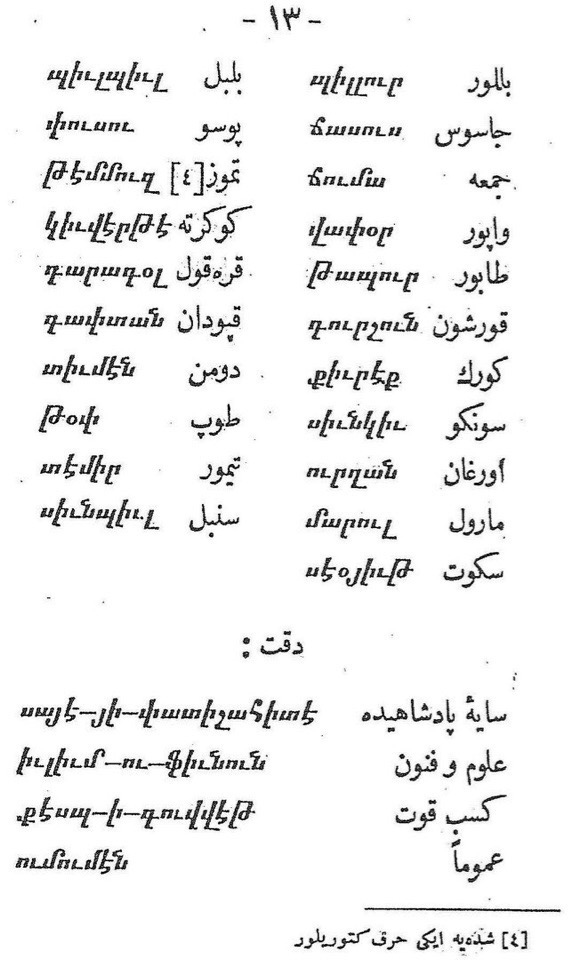 - ١٣ -
بللور պիլլուր بلبل պիւլպիւլ
جاسوس ճասուս پوسو փուսու
جمعه ճումա تموز [٤] թէմմուզ
واپور վափօր كوكرته կիւվէրթէ
طابور թապուր قره‌قول գարագօլ
قورشون գուրշուն قپودان գափտան
كورك քիւրէք دومن տիւմէն
سونكو սիւնկիւ طوپ թօփ
اورغان ուրղան تیمور տէմիր
مارول մարուլ سنبل սիւնպիւլ
سكوت սէօյիւթ
دقت :
سایهٔ پادشاهیده սայէ-յի-փատիշահիտէ
علوم و فنون իւլիւմ-ու-ֆիւնուն
كسب قوت քէսպ-ի-գուվվէթ
عموماً ումումէն
[٤] شده‌یه ایكی حرف كتوریلور